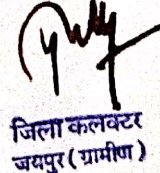 जिला कलक्टर
जयपुर ( ग्रामीण )